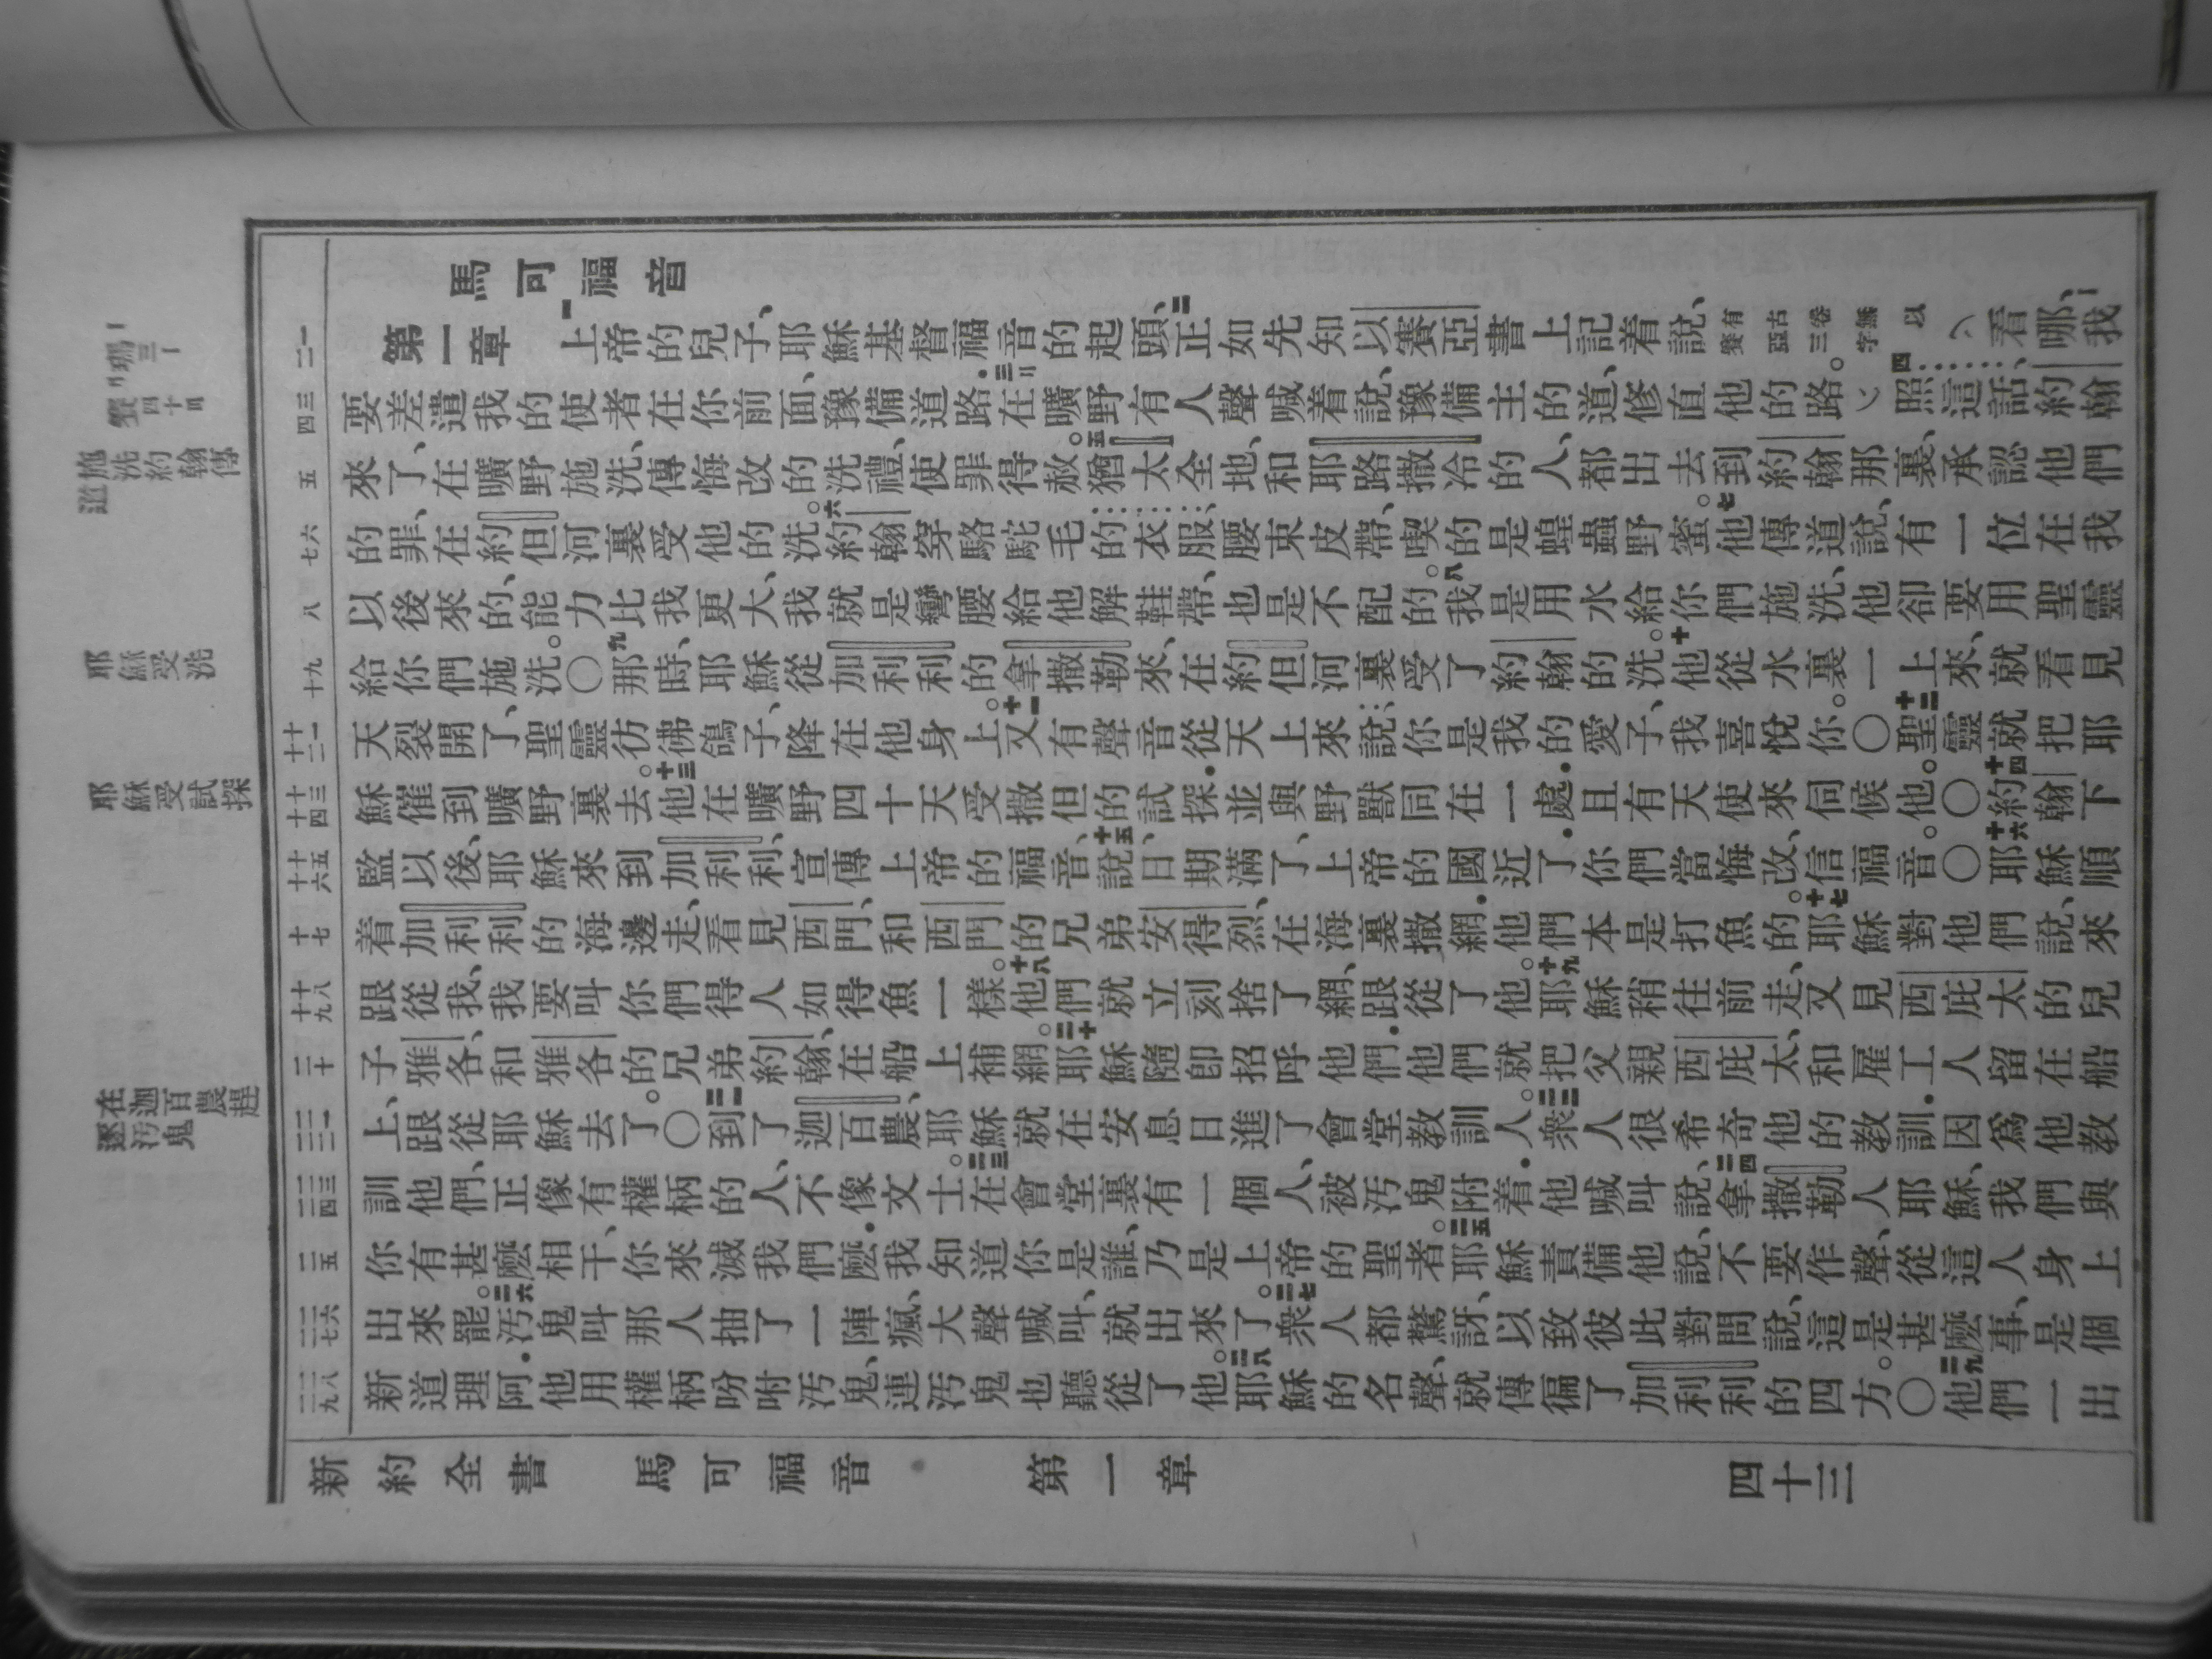 馬可福音
第一章 一上帝的兒子、耶穌基督福音的起頭、二正如先知以賽亞書上記着說、有古卷無以賽亞三字看哪、我
要差遣我的使者在你前面、豫備道路．三在曠野有人聲喊着說、豫備主的道、修直他的路。四照這話、約翰
來了、在曠野施洗、傳悔改的洗禮、使罪得赦。五猶太全地、和耶路撒冷的人、都出去到約翰那裏、承認他們
的罪、在約但河裏受他的洗。六約翰穿駱駝毛的衣服、腰束皮帶、喫的是蝗蟲野蜜。七他傳道說、有一位在我
以後來的、能力比我更大、我就是彎腰給他解鞋帶、也是不配的。八我是用水給你們施洗、他卻要用聖靈
給你們施洗。〇九那時、耶穌從加利利的拿撒勒來、在約但河裏受了約翰的洗。十他從水裏一上來、就看見
天裂開了、聖靈彷彿鴿子、降在他身上。十一又有聲音從天上來說、你是我的愛子、我喜悅你。〇十二聖靈就把耶
穌催到曠野裏去。十三他在曠野四十天受撒但的試探．並與野獸同在一處．且有天使來伺候他。〇十四約翰下
監以後、耶穌來到加利利、宣傳上帝的福音、十五說、日期滿了、上帝的國近了．你們當悔改、信福音。〇十六耶穌順
着加利利的海邊走、看見西門、和西門的兄弟安得烈、在海裏撒網．他們本是打魚的。十七耶穌對他們說、來
跟從我、我要叫你們得人如得魚一樣。十八他們就立刻捨了網、跟從了他。十九耶穌稍往前走、又見西庇太的兒
子雅各、和雅各的兄弟約翰、在船上補網。二十耶穌隨卽招呼他們．他們就把父親西庇太、和雇工人留在船
上、跟從耶穌去了。〇二一到了迦百農、耶穌就在安息日進了會堂教訓人。二二衆人很希奇他的教訓．因爲他教
訓他們、正像有權柄的人、不像文士。二三在會堂裏有一個人、被汚鬼附着．他喊叫說、二四拿撒勒人耶穌、我們與
你有甚麼相干、你來滅我們麼．我知道你是誰、乃是上帝的聖者。二五耶穌責備他說、不要作聲、從這人身上
出來罷。二六汚鬼叫那人抽了一陣瘋、大聲喊叫、就出來了。二七衆人都驚訝、以致彼此對問說、這是甚麼事、是個
新道理阿．他用權柄吩咐汚鬼、連汚鬼也聽從了他。二八耶穌的名聲、就傳徧了加利利的四方。〇二九他們一出
新約全書 馬可福音 第一章 四十三
施洗約翰傳道
耶穌受洗
耶穌受試探
在迦百農趕逐汚鬼